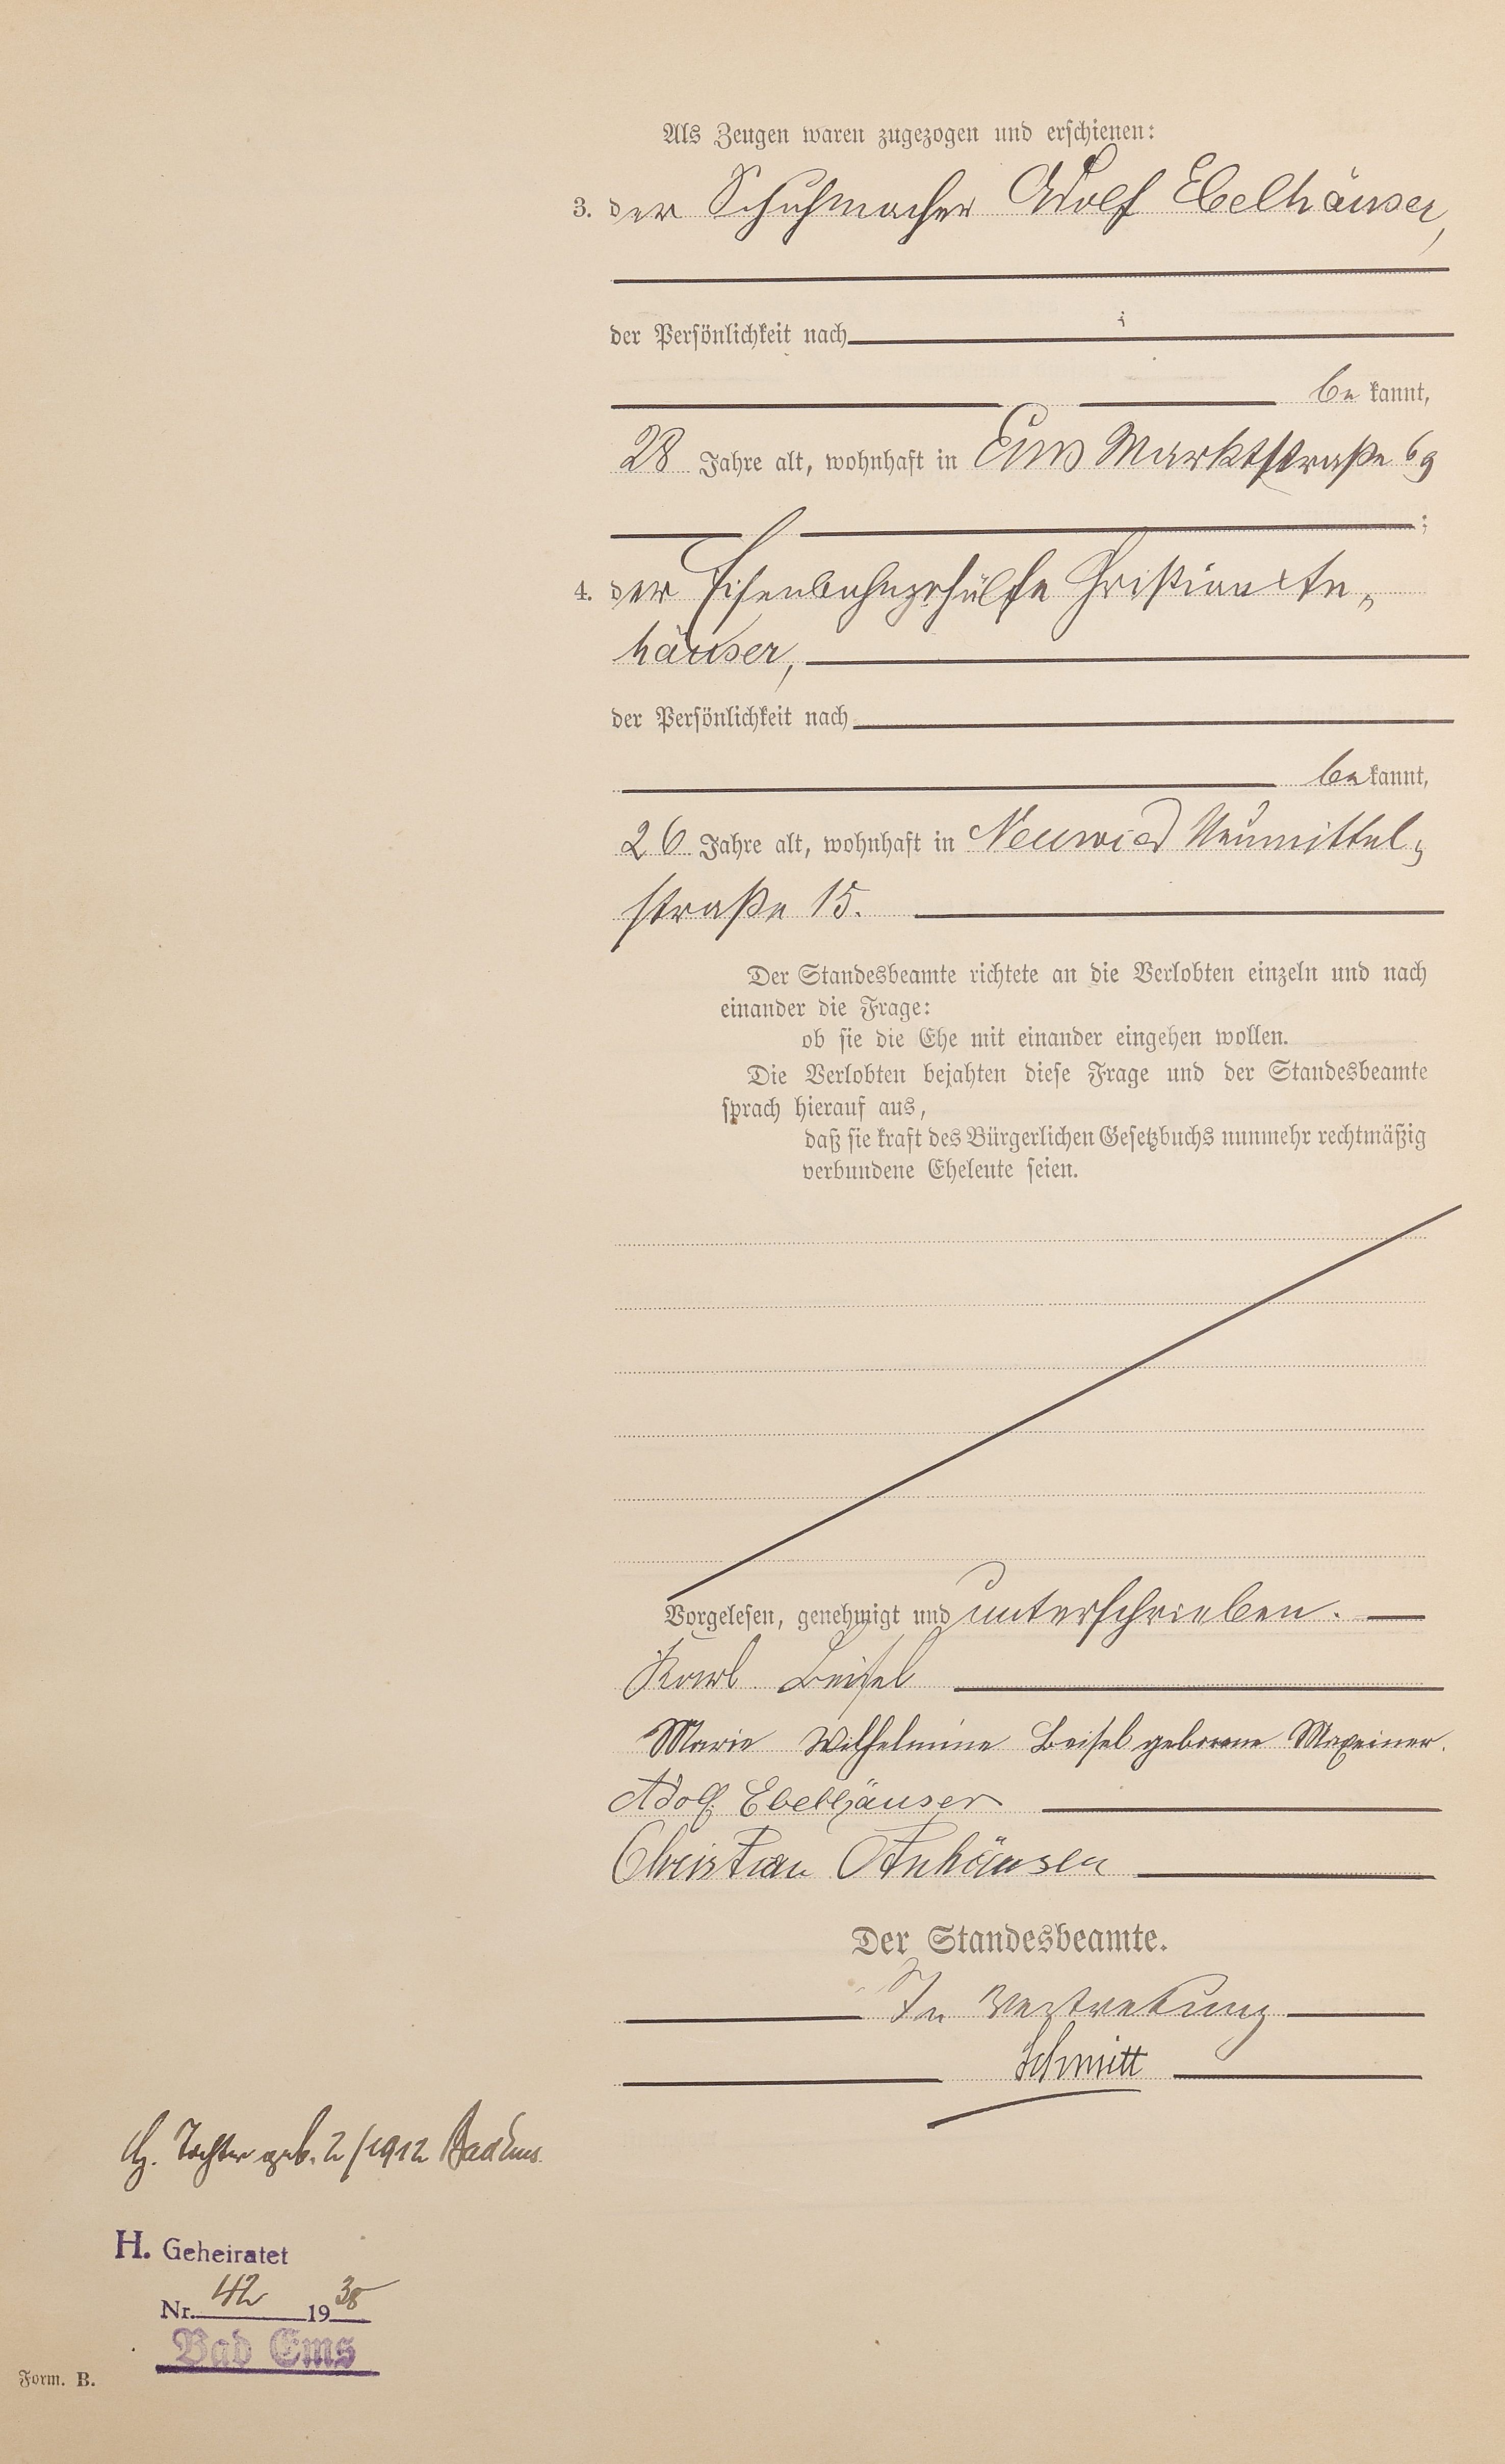 Als Zeugen waren zugezogen und erschienen:
3. der Schuhmacher Adolf Ebelhäuser,
der Persönlichkeit nach
be kannt,
28 Jahre alt, wohnhaft in Ems Marktstraße 69
;
4. der Eisenbahngehülfe Christian An„
häuser,
der Persönlichkeit nach
be kannt,
26 Jahre alt, wohnhaft in Neuwied Neumittel„
straße 15.
Der Standesbeamte richtete an die Verlobten einzeln und nach
einander die Frage:
ob sie die Ehe mit einander eingehen wollen.
Die Verlobten bejahten diese Frage und der Standesbeamte
sprach hierauf aus,
daß sie kraft des Bürgerlichen Gesetzbuchs nunmehr rechtmäßig
verbundene Eheleute seien.
Vorgelesen, genehmigt und unterschrieben.
Karl Beisel
Marie Wilhelmine Beisel geborene Maxeiner.
Adolf Ebelhäuser
Christian Anhäuser
Der Standesbeamte.
In Vertretung
Schmitt
Tochter geb. 2/1912 Bad Ems.
H. Geheiratet
Nr. 42 1938
Bad Ems
Form. B.